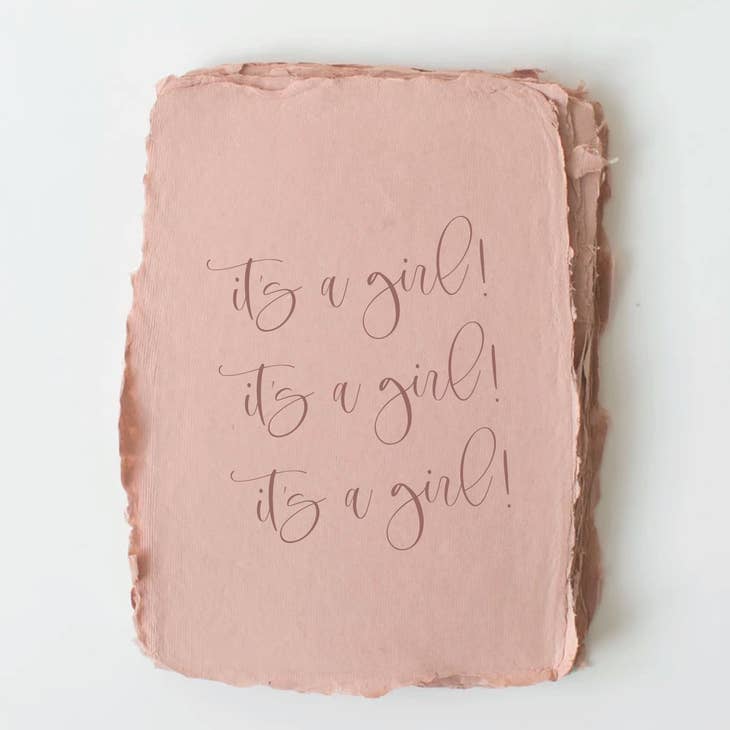 it's a girl!
it's a girl!
it's a girl!